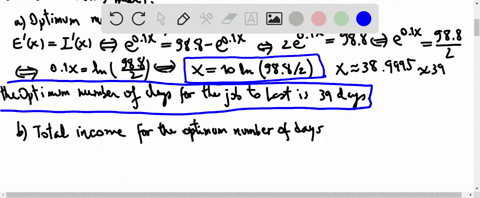 a) Optimum nu
E'(x) = I'(x) ⇔ e^{0.1x} = 98.8 - e^{0.1x} ⇔ 2e^{0.1x} = 98.8 ⇔ e^{0.1x} = 98.8/2
⇔ 0.1x = ln(98.8/2) ⇔ x = 10 ln(98.8/2) x ≈ 38.9995 ≈ 39
the Optimum number of days for the job to last is 39 days
b) Total income for the optimum number of days